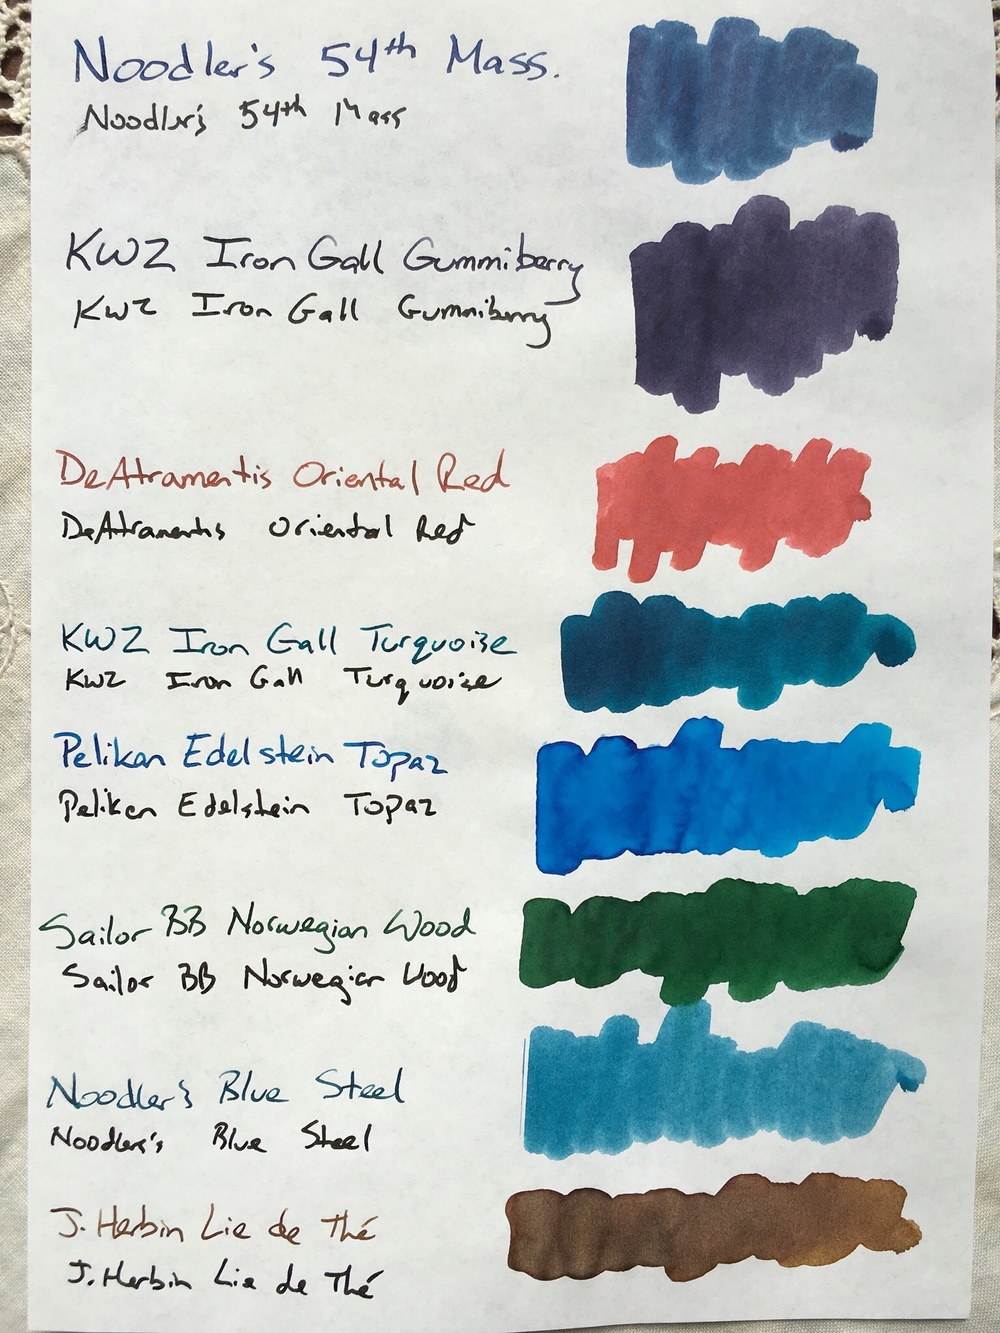 Noodler's 54th Mass.
Noodler's 54th Mass
KWZ Iron Gall Gummiberry
KWZ Iron Gall Gummiberry
DeAtramentis Oriental Red
DeAtramentis Oriental Red
KWZ Iron Gall Turquoise
KWZ Iron Gall Turquoise
Pelikan Edelstein Topaz
Pelikan Edelstein Topaz
Sailor BB Norwegian Wood
Sailor BB Norwegian Wood
Noodler's Blue Steel
Noodler's Blue Steel
J. Herbin Lie de Thé
J. Herbin Lie de Thé